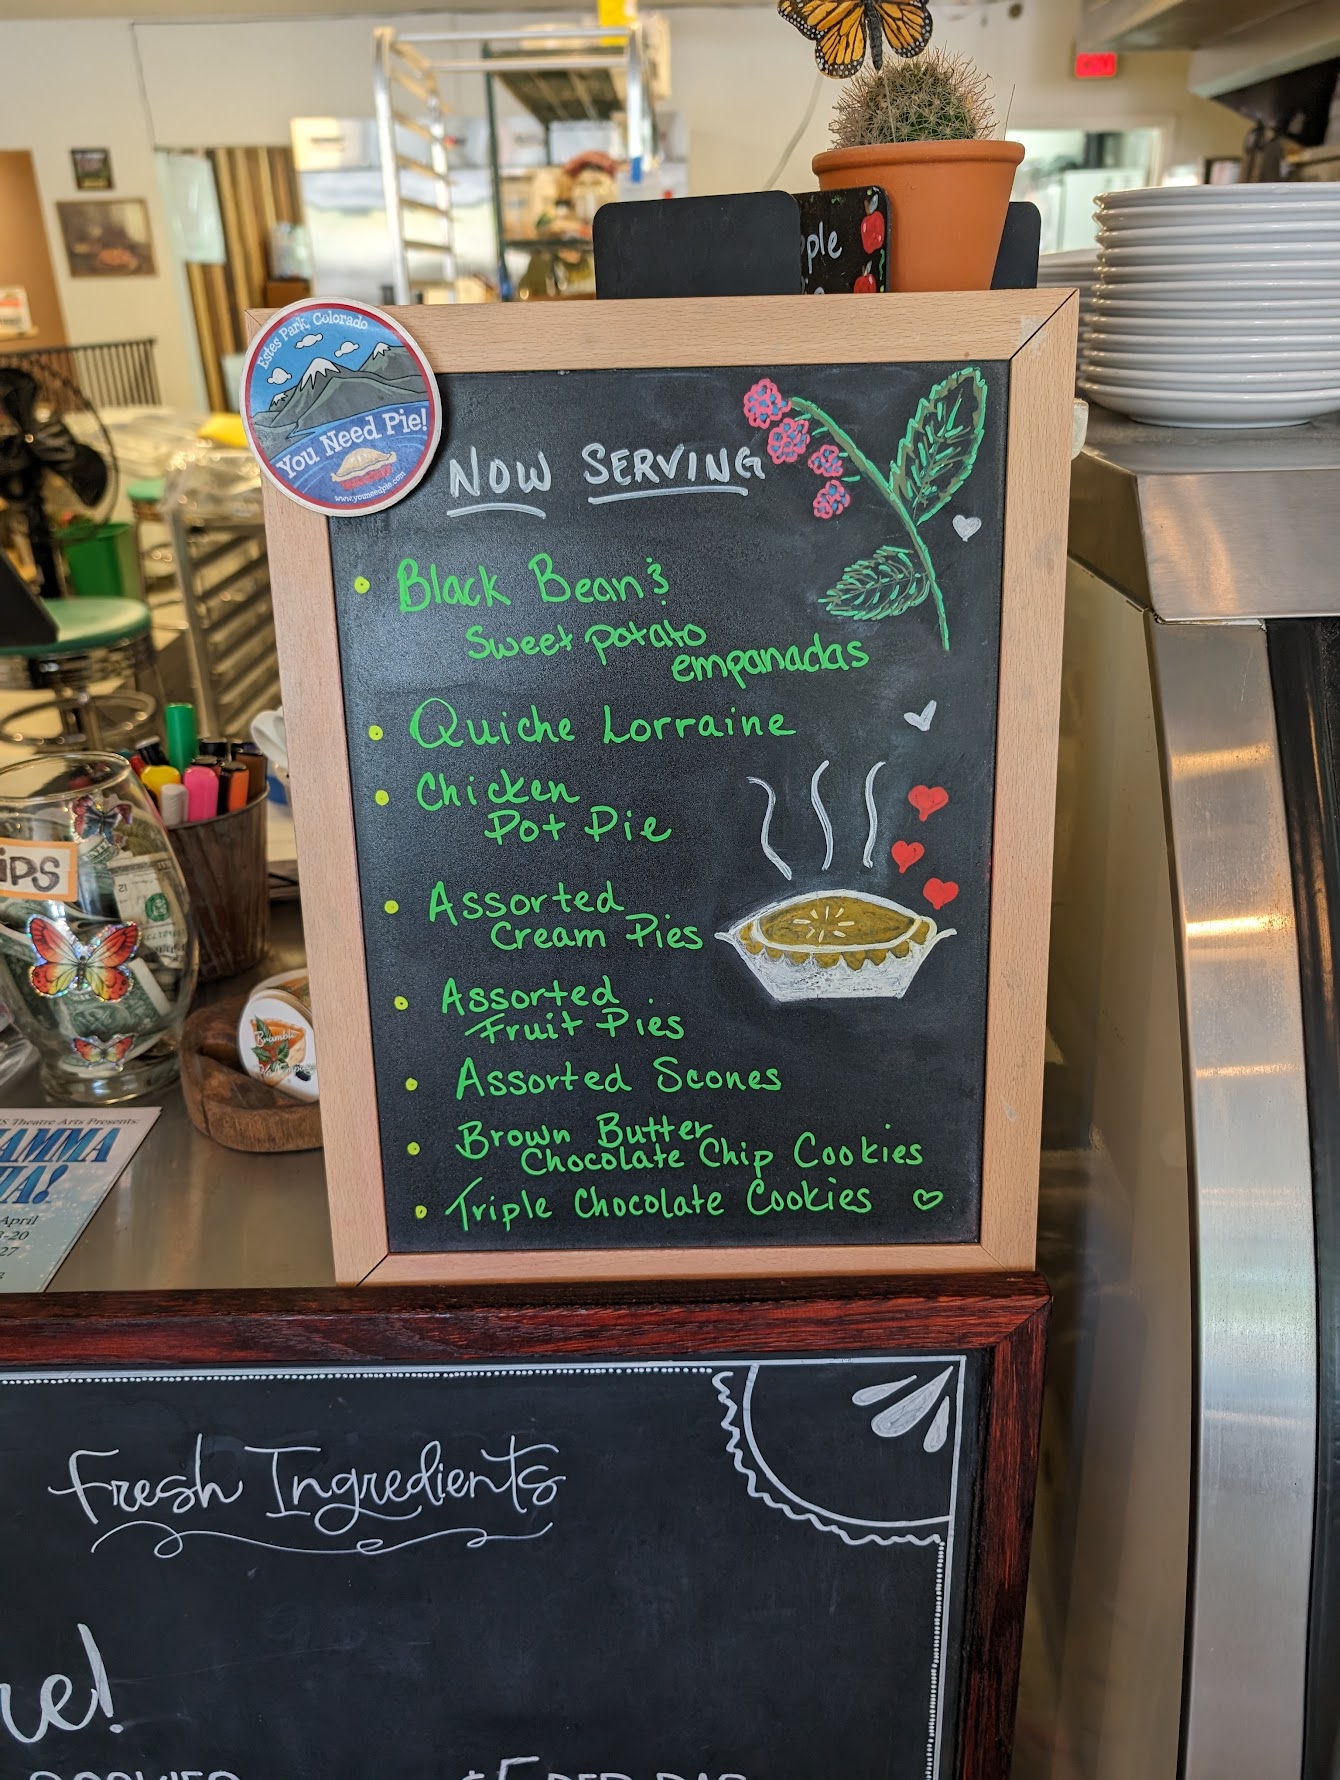 pple
Estes Park, Colorado
You Need Pie!
www.youneedpie.com
NOW SERVING
Black Bean &
Sweet potato
empanadas
Quiche Lorraine
Chicken
Pot Pie
Assorted
Cream Pies
Assorted
Fruit Pies
Assorted Scones
Brown Butter
Chocolate Chip Cookies
Triple Chocolate Cookies
iPS
Bramble
S Theatre Arts Presents:
AMMA
IA!
April
3-20
27
Fresh Ingredients
re!